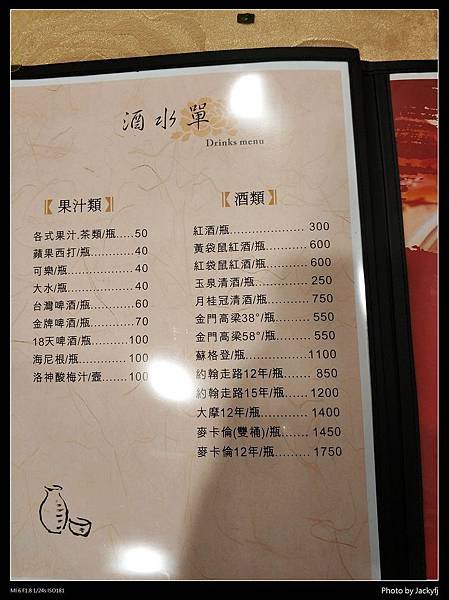 酒水單
Drinks menu
【果汁類】
各式果汁.茶類/瓶.....50
蘋果西打/瓶...........40
可樂/瓶................40
大水/瓶................40
台灣啤酒/瓶...........60
金牌啤酒/瓶...........70
18天啤酒/瓶.........100
海尼根/瓶............100
洛神酸梅汁/壺.......100
【酒類】
紅酒/瓶...................... 300
黃袋鼠紅酒/瓶............ 600
紅袋鼠紅酒/瓶............ 600
玉泉清酒/瓶............... 250
月桂冠清酒/瓶............ 750
金門高梁38°/瓶.......... 550
金門高梁58°/瓶.......... 550
蘇格登/瓶..................1100
約翰走路12年/瓶........ 850
約翰走路15年/瓶....... 1200
大摩12年/瓶.............. 1400
麥卡倫(雙桶)/瓶....... 1450
麥卡倫12年/瓶......... 1750
MI 6 F1.8 1/24s ISO181
Photo by Jackyfj